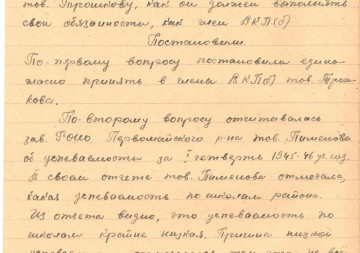 тов. Трошкову, как он должен выполнять
свои обязанности, как член ВКП(б)
Постановили.
По первому вопросу постановили едино-
гласно принять в члены ВКП(б) тов. Трош-
кова.
По второму вопросу отчитывалась
зав. РОНО Первомайского р-на тов. Пименова
об успеваемости за I четверть 1945-46 уч. год.
В своем отчете тов. Пименова отмечала,
какая успеваемость по школам района.
Из отчета видно, что успеваемость по
школам крайне низкая. Причина низкой